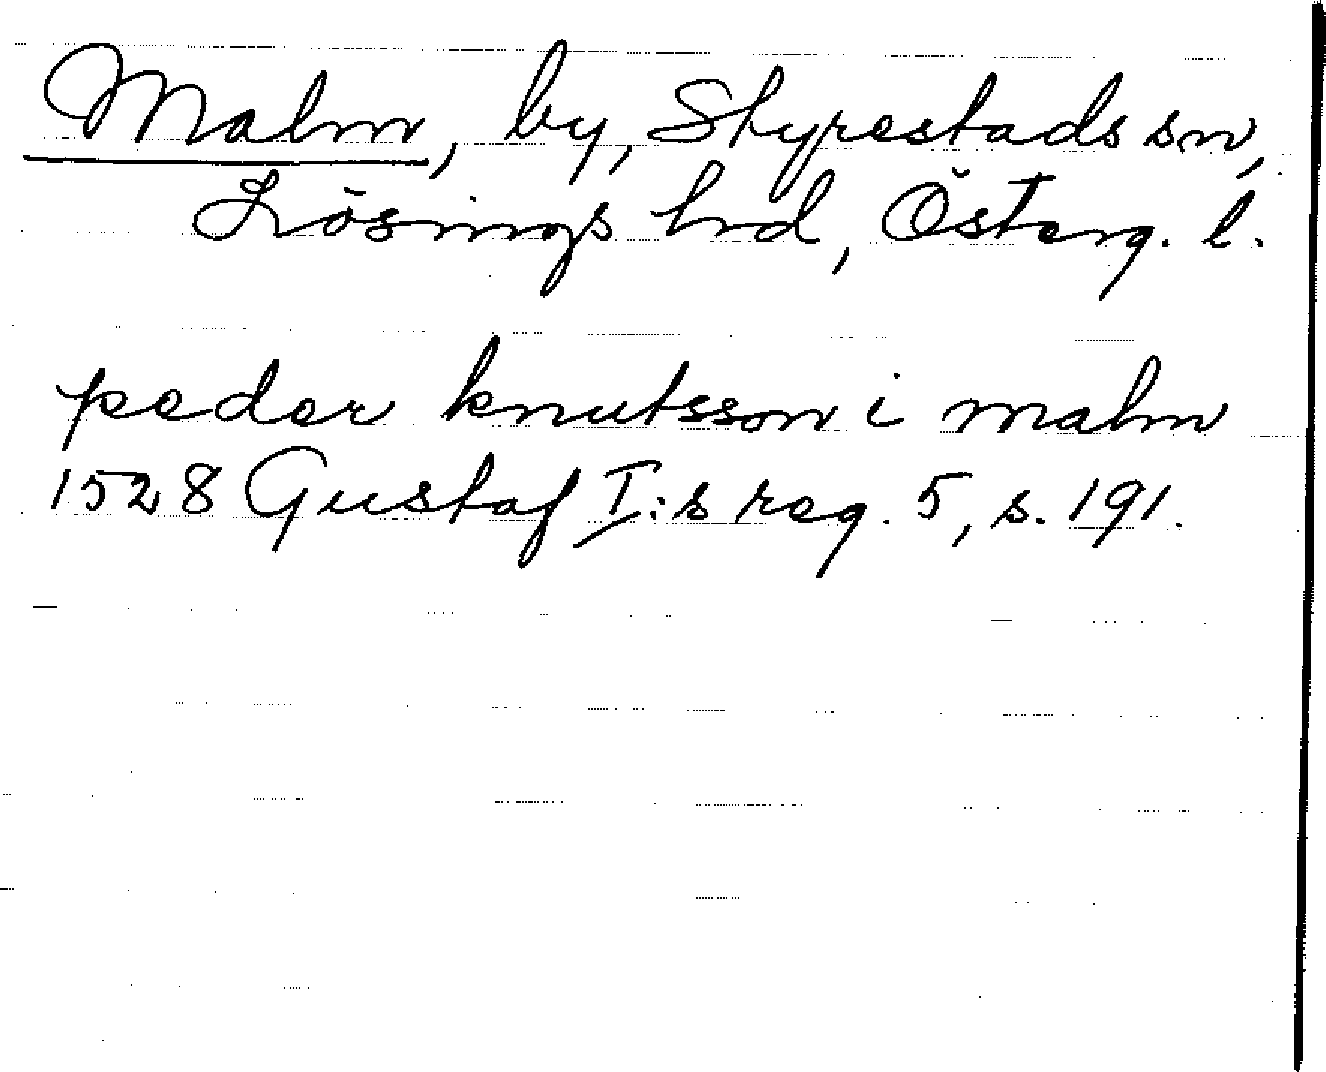 Malm, by, Styrestads sn,
Lösings hrd, Österg. l.
peder knutsson i malm
1528 Gustaf I:s reg. 5, s. 191.